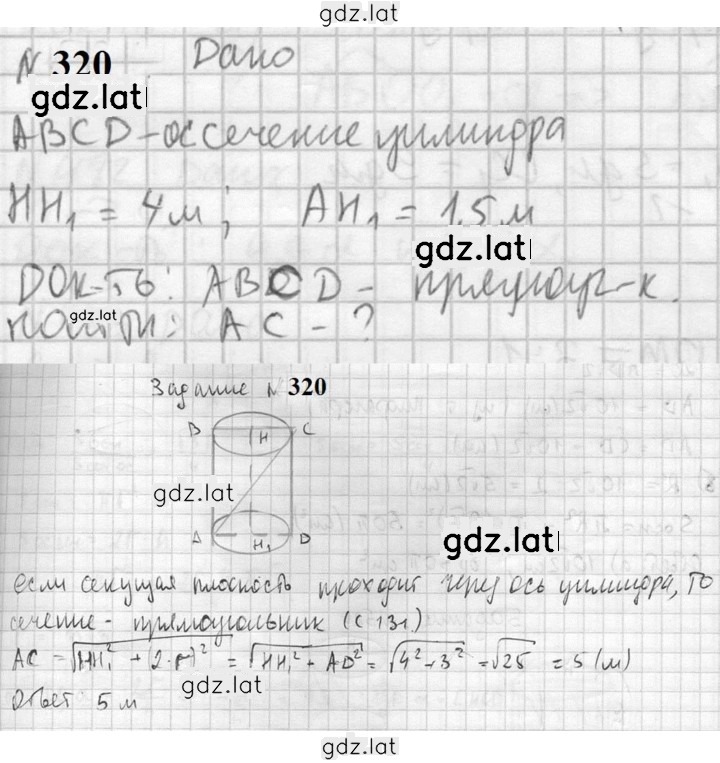 gdz.lat
№ 320 Дано
gdz.lat
ABCD - ос сечение цилиндра
HH₁ = 4 м ; AH₁ = 1,5 м
gdz.lat
Док-ть: ABCD - прямоуг-к.
найти: AC - ?
gdz.lat
Задание № 320
B H C
gdz.lat
A H₁ D
gdz.lat
если секущая плоскость проходит через ось цилиндра, то
сечение - прямоугольник (с 131)
AC = √HH₁² + (2·r)² = √HH₁² + AD² = √4² + 3² = √25 = 5 (м)
gdz.lat
Ответ 5 м
gdz.lat